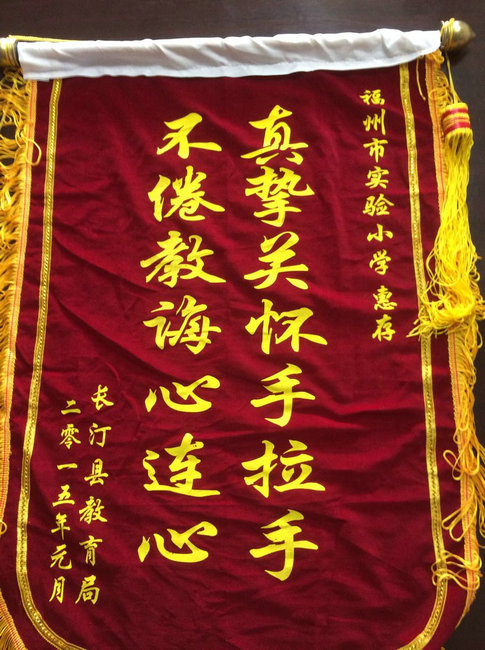 福州市实验小学惠存
真挚关怀手拉手
不倦教诲心连心
长汀县教育局
二零一五年元月